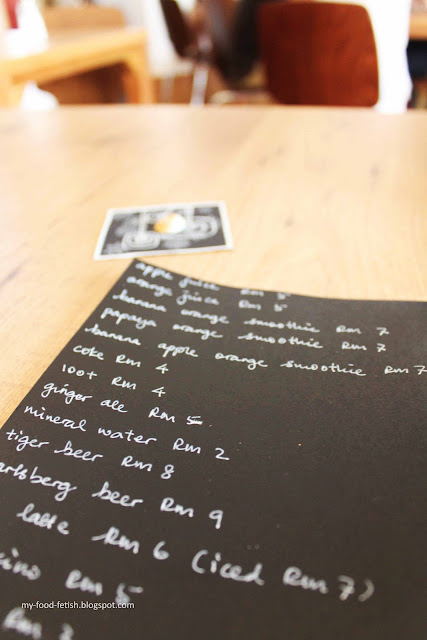 apple juice Rm 5
orange juice Rm 5
banana orange smoothie Rm 7
papaya orange smoothie Rm 7
banana apple orange smoothie Rm 7
coke Rm 4
100+ Rm 4
ginger ale Rm 5
mineral water Rm 2
tiger beer Rm 8
arlsberg beer Rm 9
latte Rm 6 (iced Rm 7)
cino Rm 5
Rm 3
my-food-fetish.blogspot.com